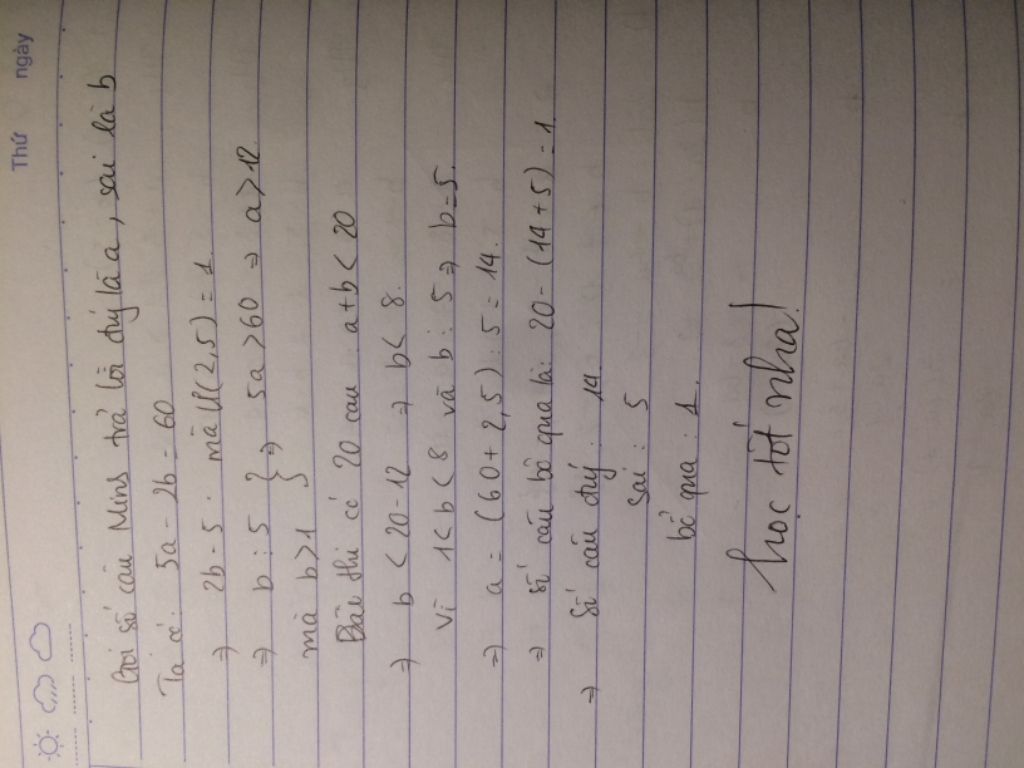 Thứ ngày
Gọi số câu Mins trả lời đúg là a, sai là b
Ta có: 5a - 2b = 60
=> 2b ⋮ 5 . mà Ư(2,5) = 1
=> b ⋮ 5 } => 5a > 60 => a > 12
mà b > 1
Bài thi có 20 câu a+b < 20
=> b < 20-12 => b < 8.
Vì 1 < b < 8 và b ⋮ 5 => b = 5.
=> a = (60 + 2,5) : 5 = 14.
=> Số câu bỏ qua là: 20 - (14+5) = 1.
=> Số câu đúg: 14
Sai: 5
bỏ qua: 1.
học tốt nha!